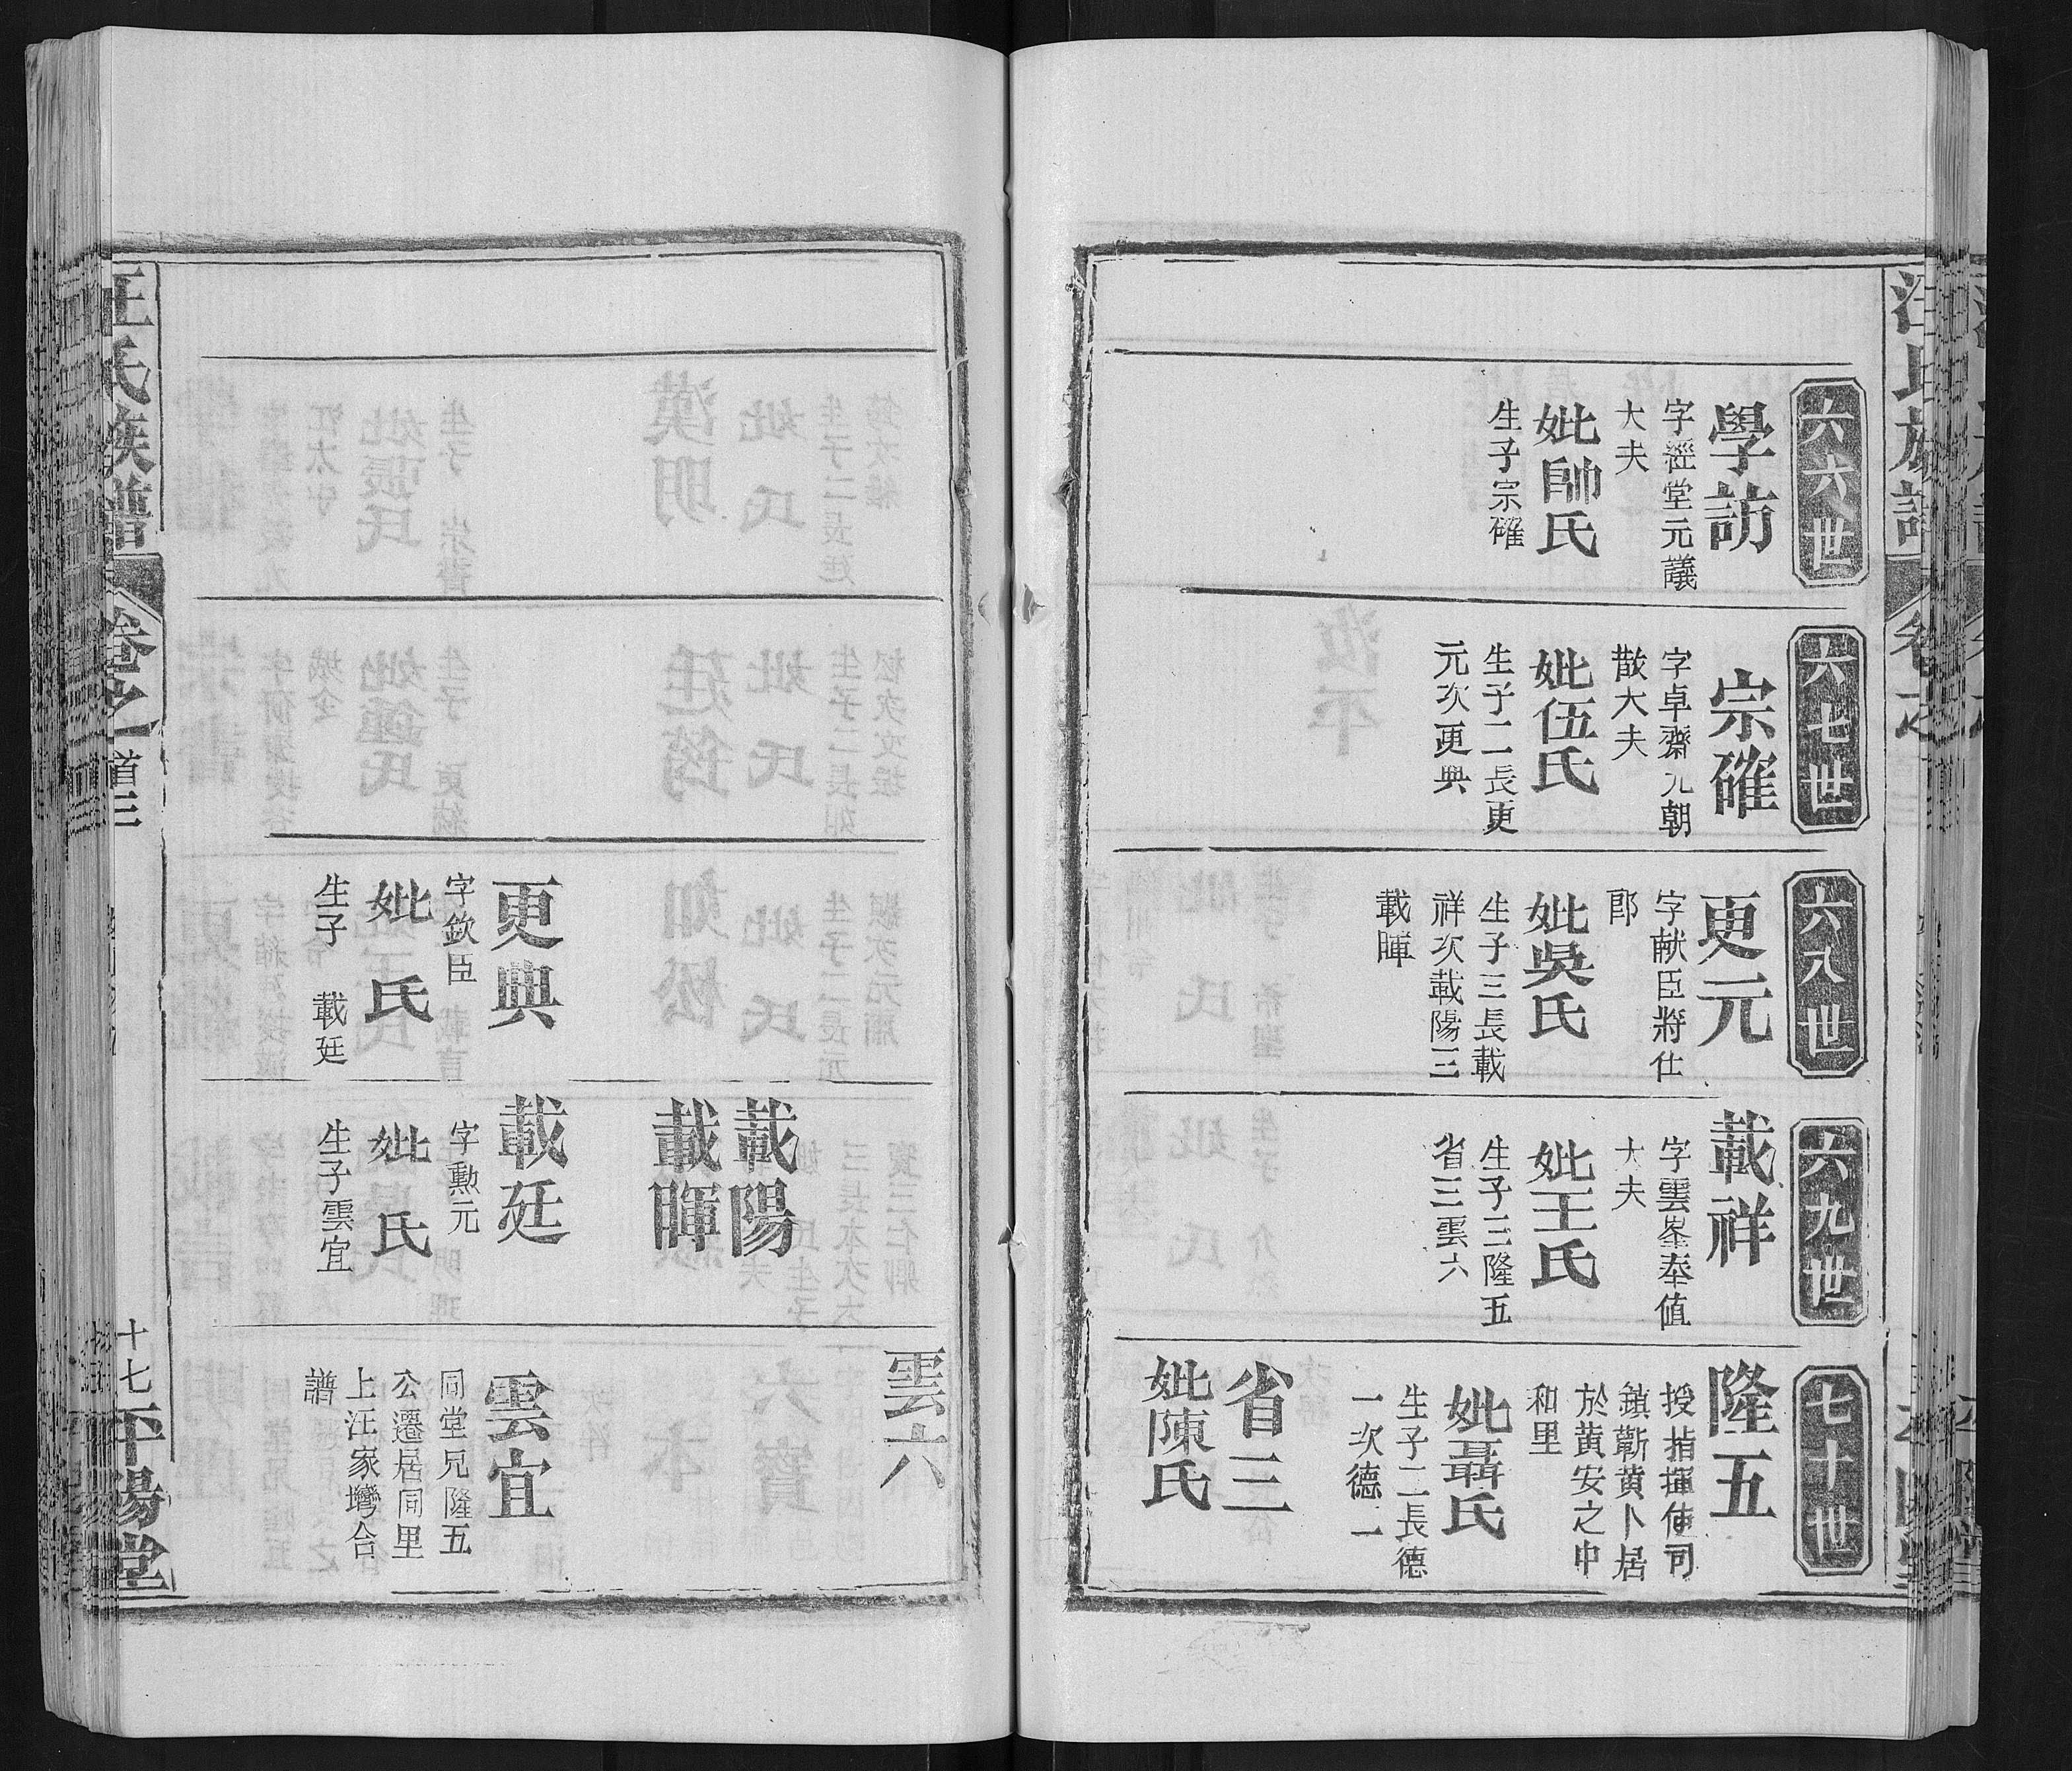 六六世
學訪
字經堂元議
大夫
妣帥氏
生子宗確
六七世
宗確
字卓齋元朝
散大夫
妣伍氏
生子二長更
元次更典
六八世
更元
字献臣將仕
郎
妣吳氏
生子三長載
祥次載陽三
載暉
六九世
載祥
字雲峯奉值
大夫
妣王氏
生子三隆五
省三雲六
七十世
隆五
授指揮使司
鎮蘄黄卜居
於黄安之中
和里
妣聶氏
生子二長德
一次德二
省三
妣陳氏
更典
字欽臣
妣 氏
生子 載廷
載陽
載暉
載廷
字勲元
妣 氏
生子雲宜
雲六
雲宜
同堂兄隆五
公遷居同里
上汪家塆合
譜
汪氏族譜
卷之一
首三
十七
平陽堂